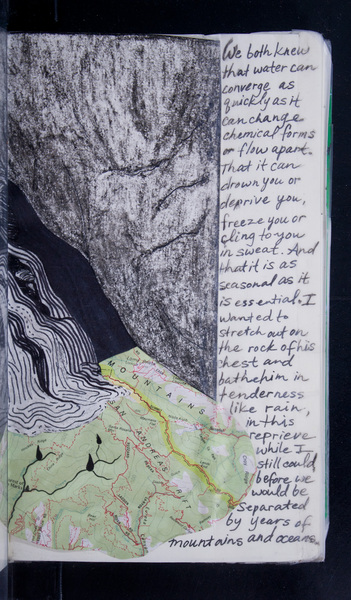 We both knew
that water can
converge as
quickly as it
can change
chemical forms
or flow apart.
That it can
drown you or
deprive you,
freeze you or
cling to you
in sweat. And
that it is as
seasonal as it
is essential. I
wanted to
stretch out on
the rock of his
chest and
bathe him in
tenderness
like rain,
in this
reprieve
while I
still could,
before we
would be
separated
by years of
mountains and oceans.
MOUNTAINS
SAN ANDREAS RIFT